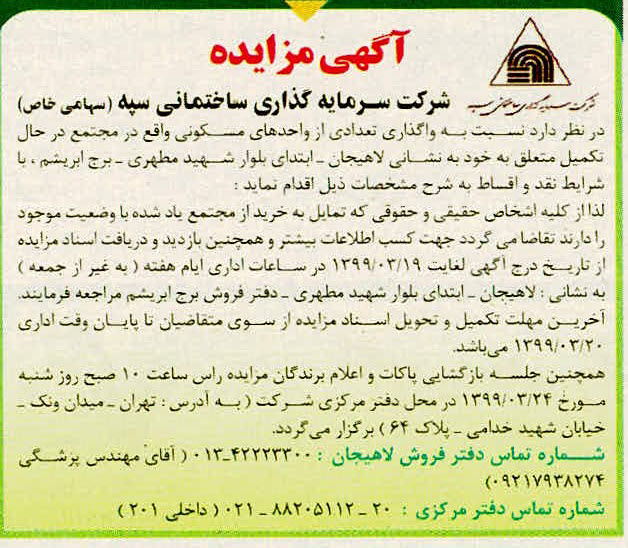 آگهی مزایده
شرکت سرمایه گذاری ساختمانی سپه
شرکت سرمایه گذاری ساختمانی سپه (سهامی خاص)
در نظر دارد نسبت به واگذاری تعدادی از واحدهای مسکونی واقع در مجتمع در حال
تکمیل متعلق به خود به نشانی لاهیجان ـ ابتدای بلوار شهید مطهری ـ برج ابریشم ، با
شرایط نقد و اقساط به شرح مشخصات ذیل اقدام نماید :
لذا از کلیه اشخاص حقیقی و حقوقی که تمایل به خرید از مجتمع یاد شده با وضعیت موجود
را دارند تقاضا می گردد جهت کسب اطلاعات بیشتر و همچنین بازدید و دریافت اسناد مزایده
از تاریخ درج آگهی لغایت ۱۳۹۹/۰۳/۱۹ در ساعات اداری ایام هفته ( به غیر از جمعه )
به نشانی : لاهیجان ـ ابتدای بلوار شهید مطهری ـ دفتر فروش برج ابریشم مراجعه فرمایند.
آخرین مهلت تکمیل و تحویل اسناد مزایده از سوی متقاضیان تا پایان وقت اداری
۱۳۹۹/۰۳/۲۰ می‌باشد.
همچنین جلسه بازگشایی پاکات و اعلام برندگان مزایده راس ساعت ۱۰ صبح روز شنبه
مورخ ۱۳۹۹/۰۳/۲۴ در محل دفتر مرکزی شرکت ( به آدرس : تهران ـ میدان ونک ـ
خیابان شهید خدامی ـ پلاک ۶۴ ) برگزار می‌گردد.
شماره تماس دفتر فروش لاهیجان : ۴۲۲۲۳۳۰۰-۰۱۳ ( آقای مهندس پزشگی
۰۹۲۱۷۹۳۸۲۷۴)
شماره تماس دفتر مرکزی : ۲۰ ـ ۸۸۲۰۵۱۱۲ ـ ۰۲۱ ( داخلی ۲۰۱ )